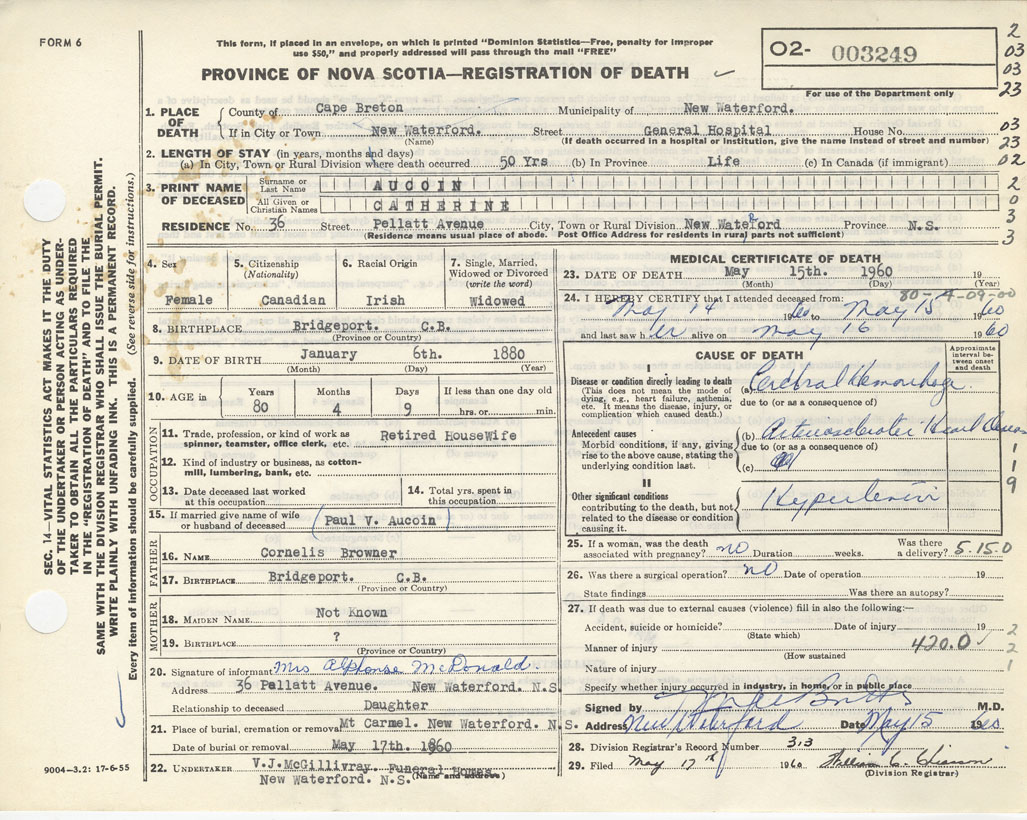 FORM 6
This form, if placed in an envelope, on which is printed "Dominion Statistics—Free, penalty for improper
use $50," and properly addressed will pass through the mail "FREE"
PROVINCE OF NOVA SCOTIA—REGISTRATION OF DEATH
O2- 003249
For use of the Department only
2
03
03
23
03
23
02
2
0
3
3
1. PLACE OF DEATH
County of Cape Breton Municipality of New Waterford.
If in City or Town New Waterford. Street General Hospital House No.
(Name) (If death occurred in a hospital or institution, give the name instead of street and number)
2. LENGTH OF STAY (in years, months and days)
(a) In City, Town or Rural Division where death occurred 50 Yrs (b) In Province Life (c) In Canada (if immigrant)
3. PRINT NAME OF DECEASED
Surname or Last Name AUCOIN
All Given or Christian Names CATHERINE
RESIDENCE No. 36 Street Pellatt Avenue City, Town or Rural Division New Wateford. Province N.S.
(Residence means usual place of abode. Post Office Address for residents in rural parts not sufficient)
4. Sex
Female
5. Citizenship
(Nationality)
Canadian
6. Racial Origin
Irish
7. Single, Married, Widowed or Divorced
(write the word)
Widowed
8. BIRTHPLACE Bridgeport. C.B.
(Province or Country)
9. DATE OF BIRTH January 6th. 1880
(Month) (Day) (Year)
10. AGE in
Years Months Days If less than one day old
80 4 9 hrs. or min.
OCCUPATION
11. Trade, profession, or kind of work as spinner, teamster, office clerk, etc. Retired HouseWife
12. Kind of industry or business, as cotton-mill, lumbering, bank, etc.
13. Date deceased last worked at this occupation
14. Total yrs. spent in this occupation
15. If married give name of wife or husband of deceased (Paul V. Aucoin)
FATHER
16. NAME Cornelis Browner
17. BIRTHPLACE Bridgeport. C.B.
(Province or Country)
MOTHER
18. MAIDEN NAME Not Known
19. BIRTHPLACE ?
(Province or Country)
20. Signature of informant Mrs Alphonse McDonald.
Address 36 Pallatt Avenue. New Waterford. N.S.
Relationship to deceased Daughter
21. Place of burial, cremation or removal Mt Carmel. New Waterford. N.S.
Date of burial or removal May 17th. 1960
22. UNDERTAKER V.J.McGillivray. Funeral Homes.
(Name and address)
New Waterford. N.S.
9004—3.2: 17-6-55
MEDICAL CERTIFICATE OF DEATH
23. DATE OF DEATH May 15th. 1960 19
(Month) (Day) (Year)
80-4-09-00
24. I HEREBY CERTIFY that I attended deceased from:
May 14 1960 to May 15 1960
and last saw her alive on May 16 1960
CAUSE OF DEATH
Approximate interval between onset and death
I
Disease or condition directly leading to death
(This does not mean the mode of dying, e.g., heart failure, asthenia, etc. It means the disease, injury, or complication which caused death.)
(a) Cerebral Hemorrhage.
due to (or as a consequence of)
Antecedent causes
Morbid conditions, if any, giving rise to the above cause, stating the underlying condition last.
(b) Arteriosclerotic Heart Disease
due to (or as a consequence of)
(c)
1
1
9
II
Other significant conditions
contributing to the death, but not related to the disease or condition causing it.
25. If a woman, was the death associated with pregnancy? no Duration weeks. Was there a delivery? 5.15.0
26. Was there a surgical operation? no Date of operation 19
State findings Was there an autopsy?
27. If death was due to external causes (violence) fill in also the following:—
Accident, suicide or homicide? Date of injury 19
(State which)
Manner of injury 420.0
(How sustained)
Nature of injury
2
2
1
Specify whether injury occurred in industry, in home, or in public place
Signed by M.D.
Address New Waterford Date May 15 1960
28. Division Registrar's Record Number 313
29. Filed May 17th 1960
(Division Registrar)
SEC. 14—VITAL STATISTICS ACT MAKES IT THE DUTY
OF THE UNDERTAKER OR PERSON ACTING AS UNDER-
TAKER TO OBTAIN ALL THE PARTICULARS REQUIRED
IN THE "REGISTRATION OF DEATH" AND TO FILE THE
SAME WITH THE DIVISION REGISTRAR WHO SHALL ISSUE THE BURIAL PERMIT.
WRITE PLAINLY WITH UNFADING INK. THIS IS A PERMANENT RECORD.
Every item of information should be carefully supplied. (See reverse side for instructions.)